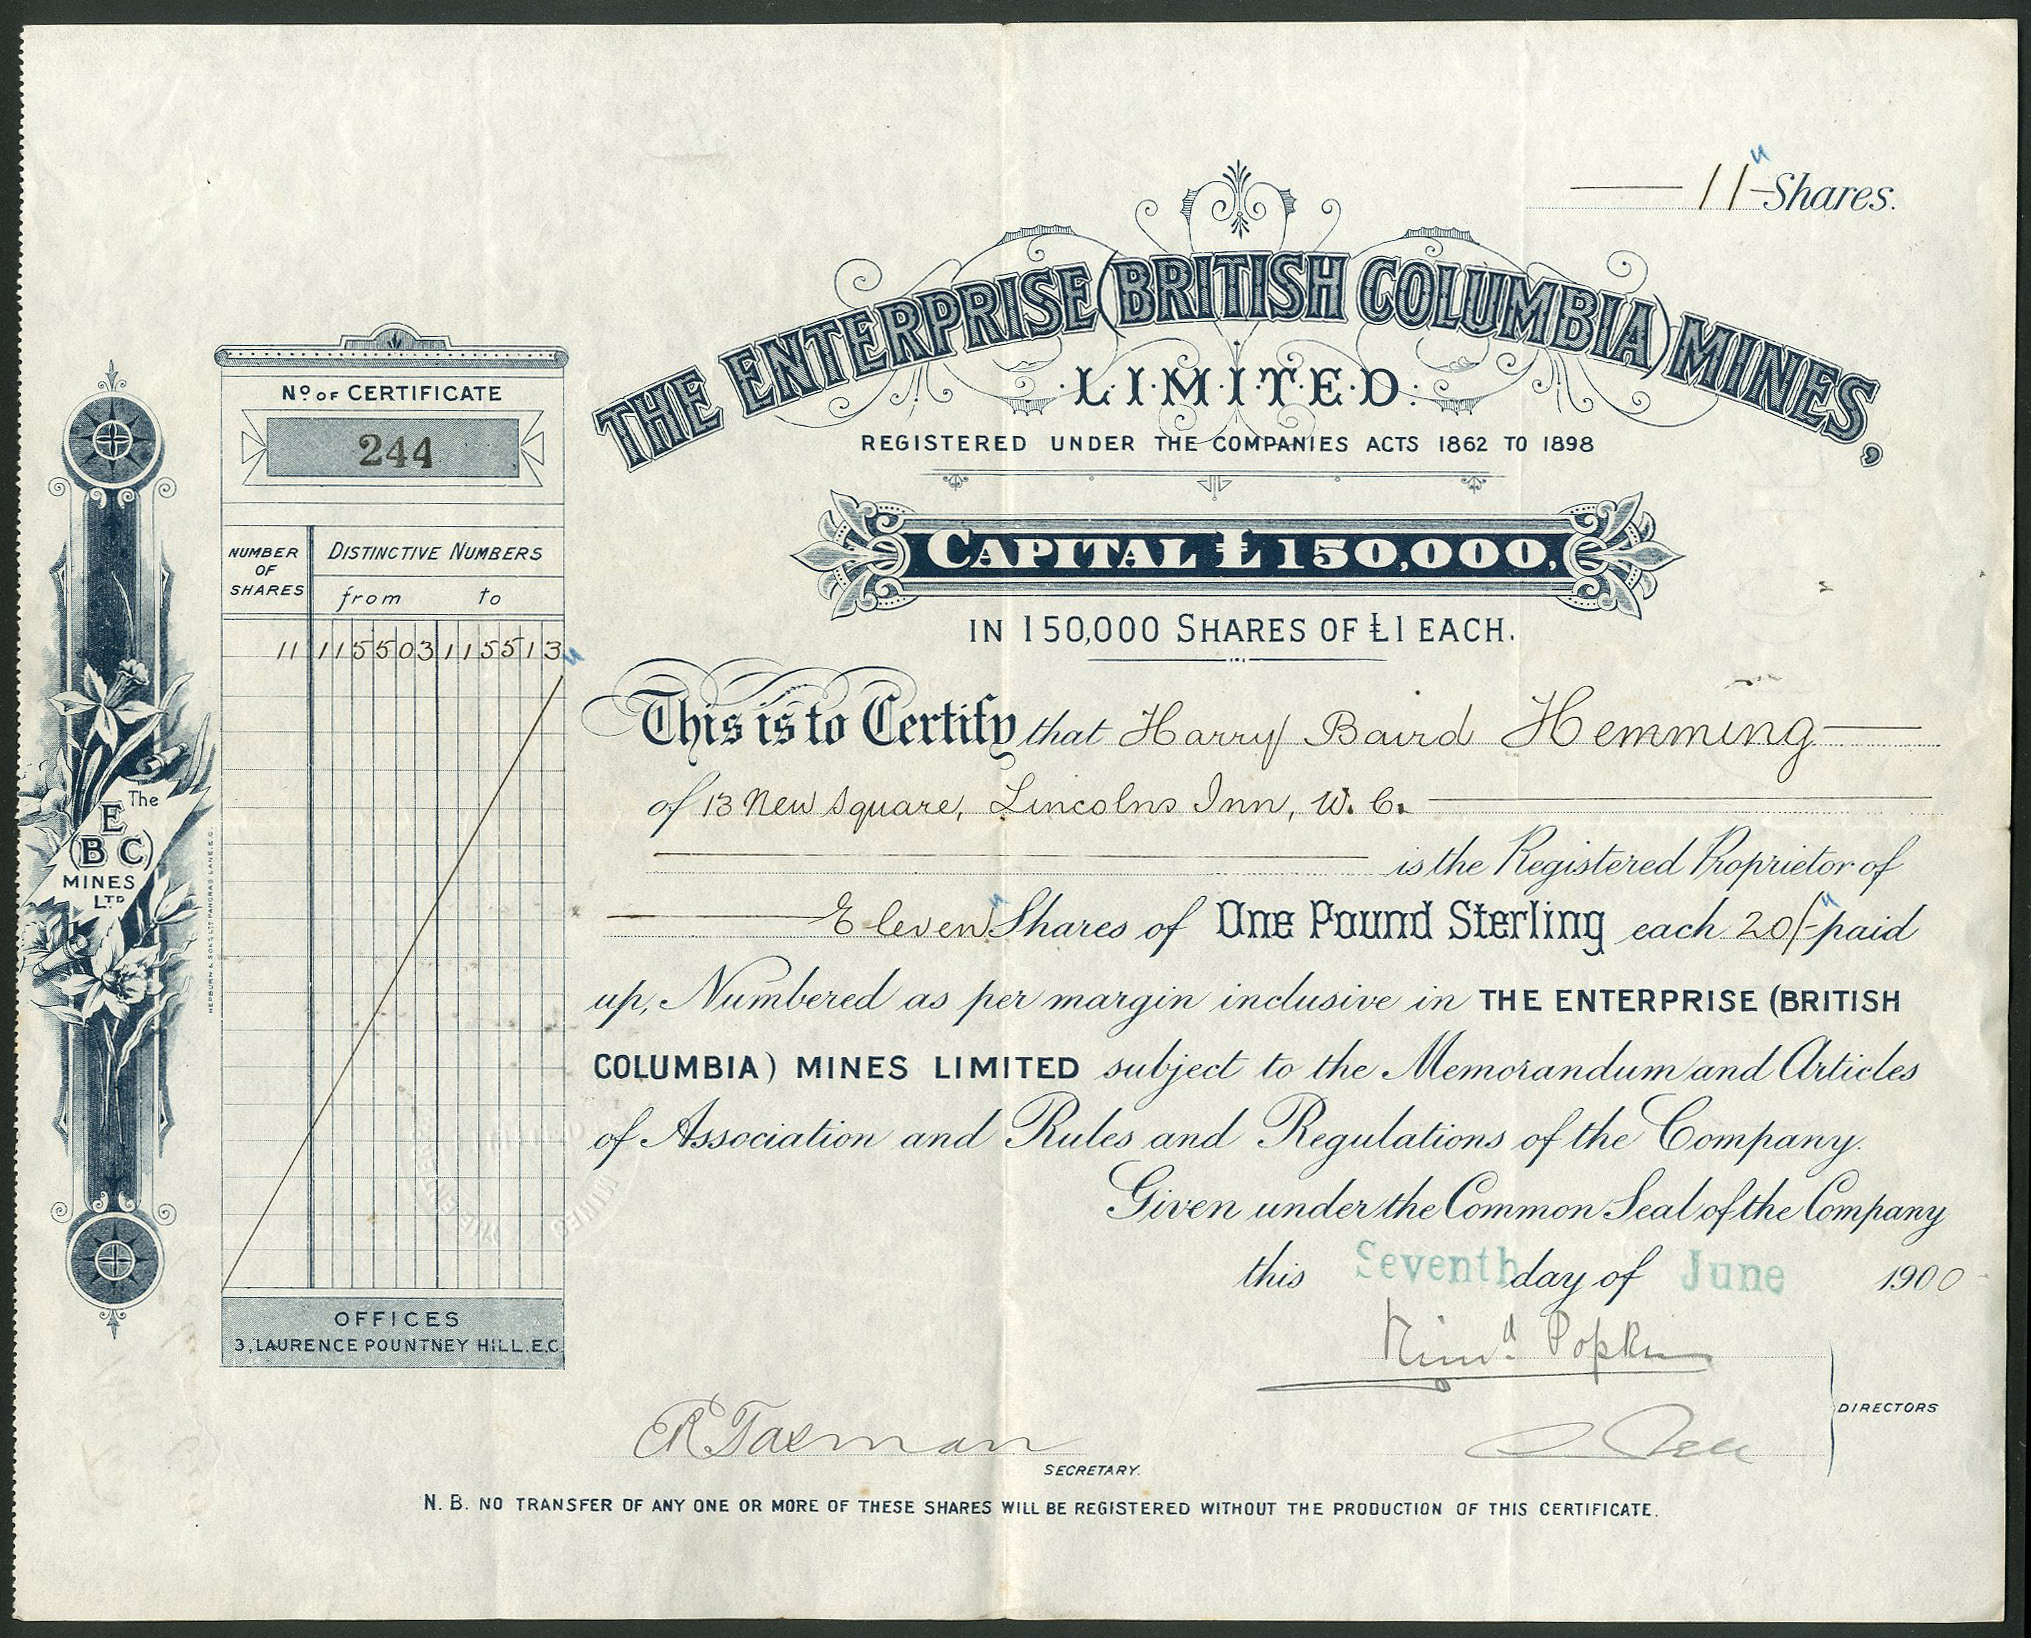 11 Shares.
THE ENTERPRISE (BRITISH COLUMBIA) MINES,
LIMITED.
REGISTERED UNDER THE COMPANIES ACTS 1862 TO 1898
CAPITAL £150,000,
IN 150,000 SHARES OF £1 EACH.
No OF CERTIFICATE
244
NUMBER OF SHARES
DISTINCTIVE NUMBERS
from to
11 115503 115513
The
E
(B C)
MINES
LTD
HEPBURN & SONS LTD PANCRAS LANE. E.C.
This is to Certify that Harry Baird Hemming
of 13 New Square, Lincolns Inn, W. C.
is the Registered Proprietor of
Eleven Shares of One Pound Sterling each 20/- paid
up, Numbered as per margin inclusive in THE ENTERPRISE (BRITISH
COLUMBIA) MINES LIMITED subject to the Memorandum and Articles
of Association and Rules and Regulations of the Company.
Given under the Common Seal of the Company
this Seventh day of June 1900
OFFICES
3, LAURENCE POUNTNEY HILL. E.C.
Popkin
DIRECTORS
R Tasman
SECRETARY.
N. B. NO TRANSFER OF ANY ONE OR MORE OF THESE SHARES WILL BE REGISTERED WITHOUT THE PRODUCTION OF THIS CERTIFICATE.